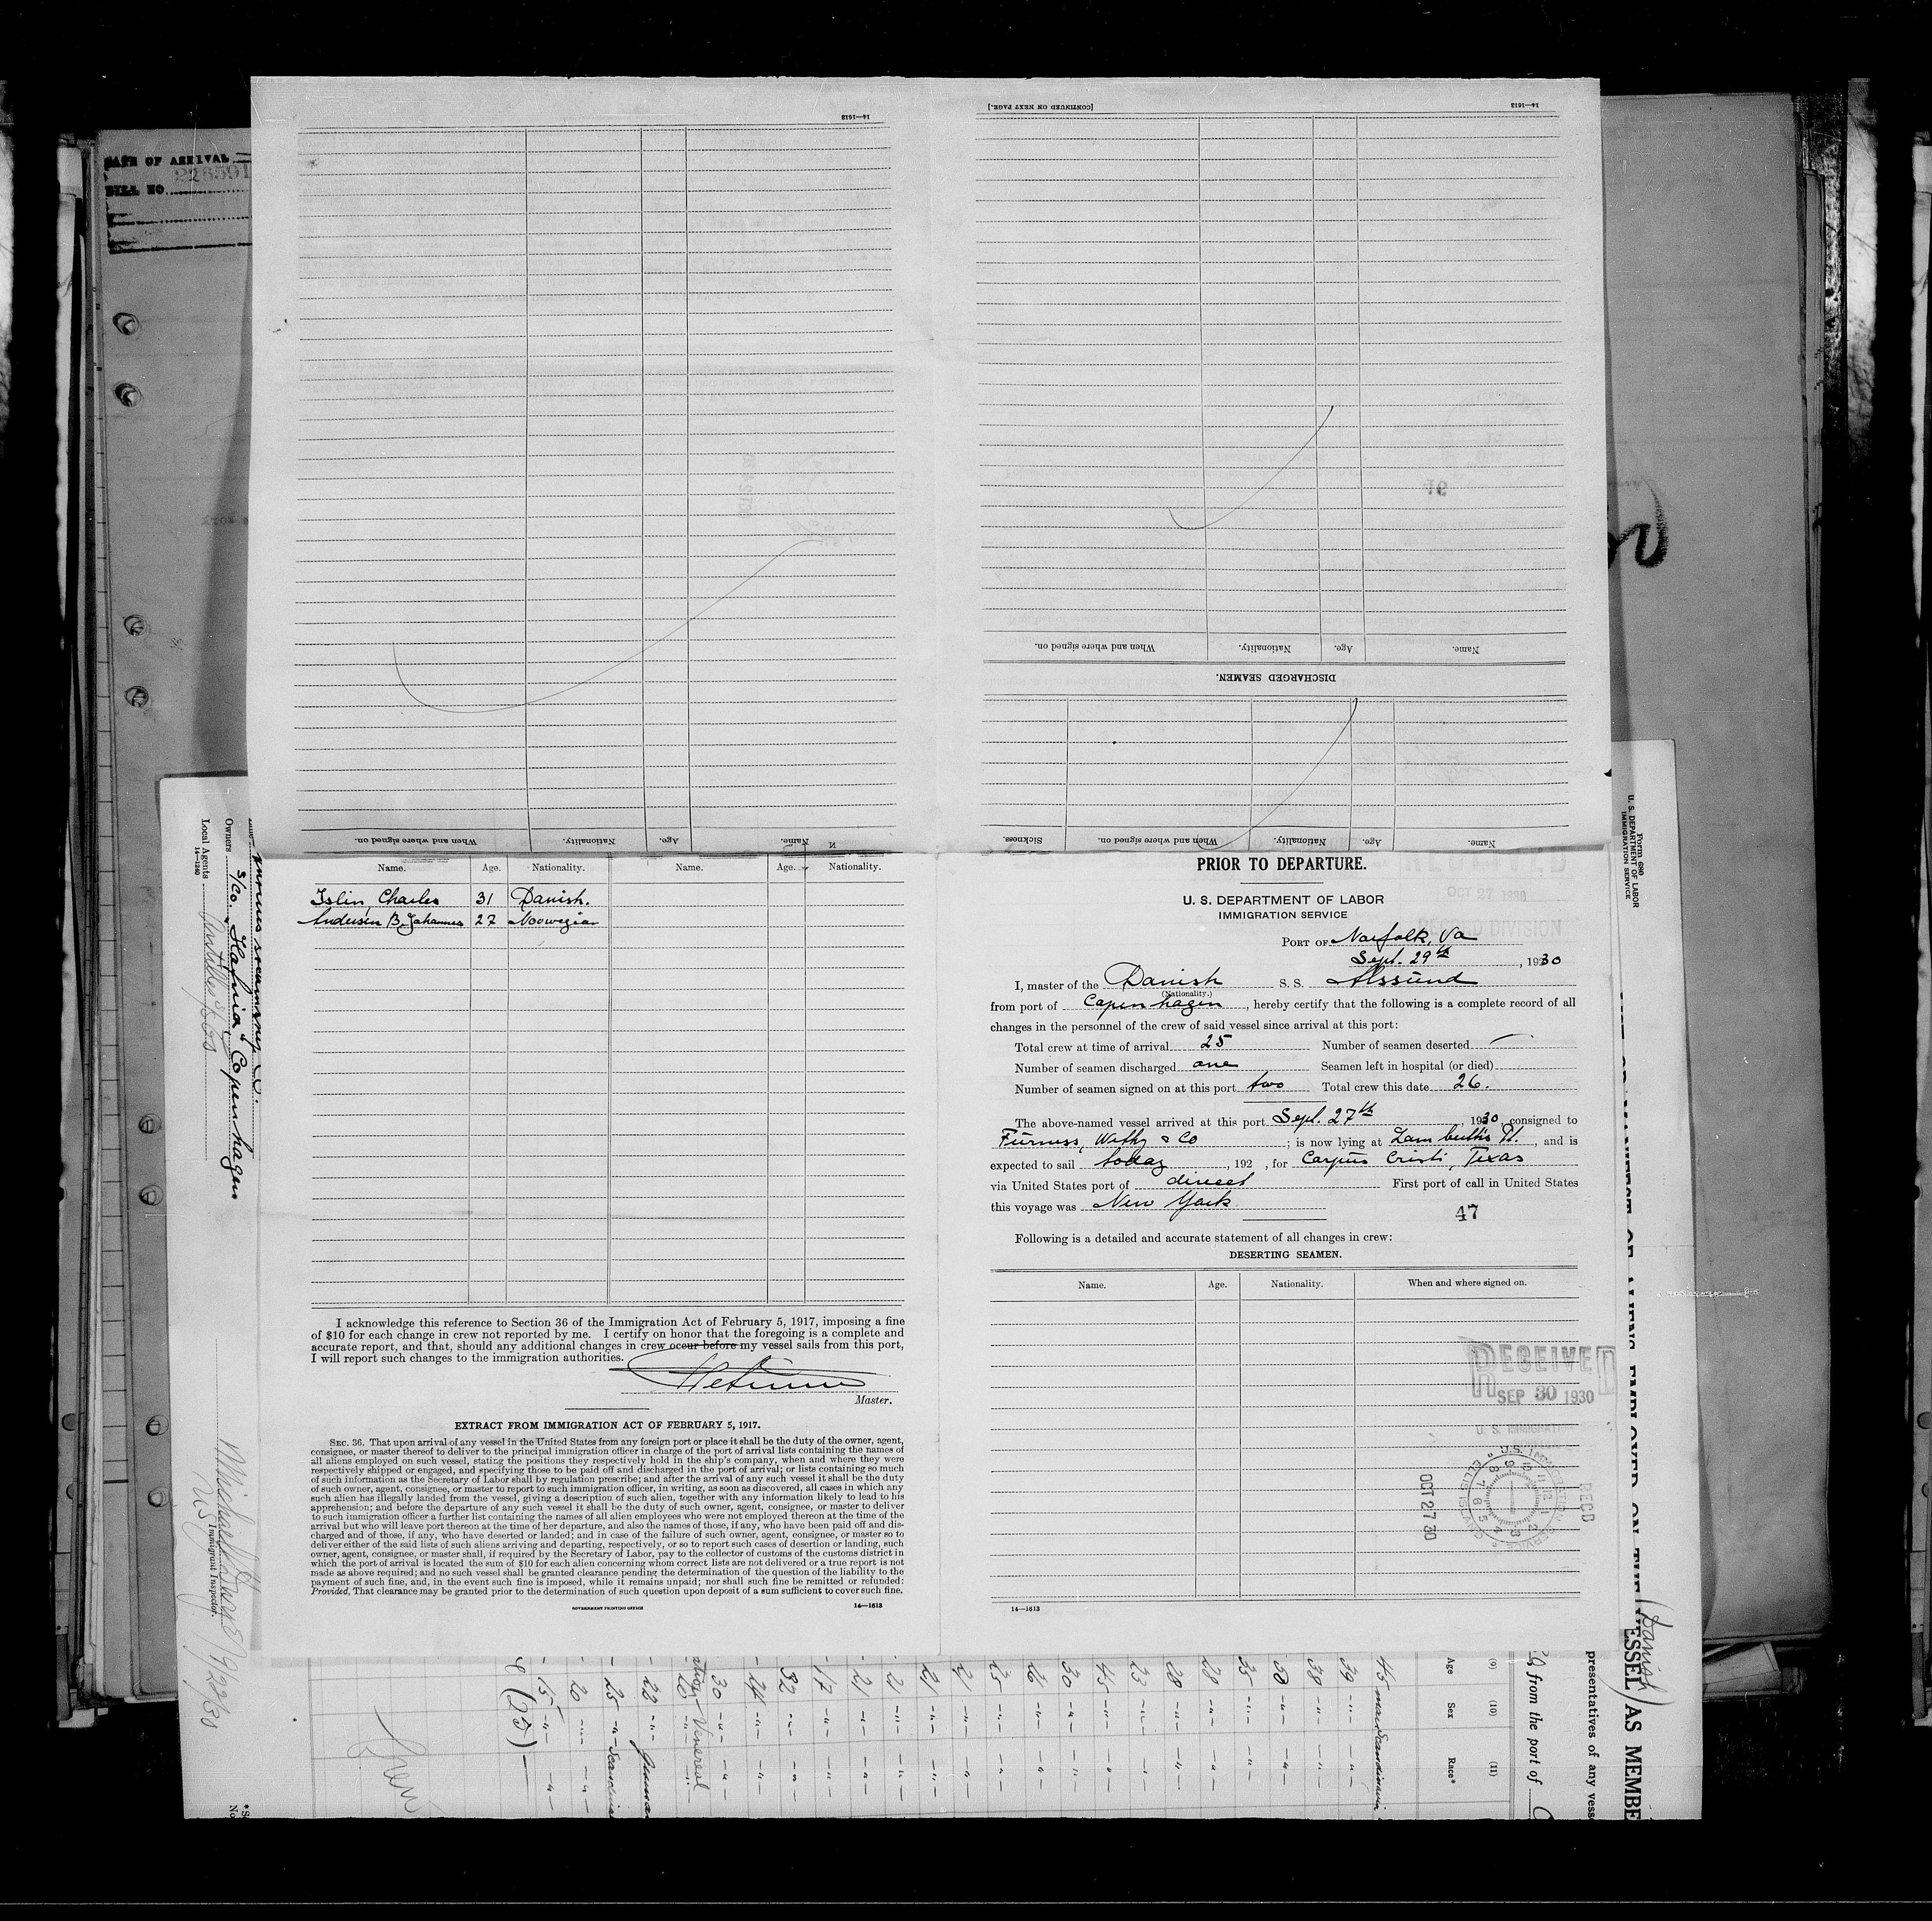 DATE OF ARRIVAL
BILL NO. 226591
14—1613
When and where signed on.
Nationality.
Age.
Name.
[CONTINUED ON NEXT PAGE.]
14—1613
When and where signed on.
Nationality.
Age.
Name.
DISCHARGED SEAMEN.
Sickness.
When and where signed on.
Nationality.
Age.
Name.
Name. Age. Nationality. Name. Age. Nationality.
Islin, Charles 31 Danish.
Andersen B. Johannes 27 Norwegian
I acknowledge this reference to Section 36 of the Immigration Act of February 5, 1917, imposing a fine
of $10 for each change in crew not reported by me. I certify on honor that the foregoing is a complete and
accurate report, and that, should any additional changes in crew occur before my vessel sails from this port,
I will report such changes to the immigration authorities.
Master.
EXTRACT FROM IMMIGRATION ACT OF FEBRUARY 5, 1917.
SEC. 36. That upon arrival of any vessel in the United States from any foreign port or place it shall be the duty of the owner, agent,
consignee, or master thereof to deliver to the principal immigration officer in charge of the port of arrival lists containing the names of
all aliens employed on such vessel, stating the positions they respectively hold in the ship's company, when and where they were
respectively shipped or engaged, and specifying those to be paid off and discharged in the port of arrival; or lists containing so much
of such information as the Secretary of Labor shall by regulation prescribe; and after the arrival of any such vessel it shall be the duty
of such owner, agent, consignee, or master to report to such immigration officer, in writing, as soon as discovered, all cases in which any
such alien has illegally landed from the vessel, giving a description of such alien, together with any information likely to lead to his
apprehension; and before the departure of any such vessel it shall be the duty of such owner, agent, consignee, or master to deliver
to such immigration officer a further list containing the names of all alien employees who were not employed thereon at the time of the
arrival but who will leave port thereon at the time of her departure, and also the names of those, if any, who have been paid off and dis-
charged and of those, if any, who have deserted or landed; and in case of the failure of such owner, agent, consignee, or master so to
deliver either of the said lists of such aliens arriving and departing, respectively, or so to report such cases of desertion or landing, such
owner, agent, consignee, or master shall, if required by the Secretary of Labor, pay to the collector of customs of the customs district in
which the port of arrival is located the sum of $10 for each alien concerning whom correct lists are not delivered or a true report is not
made as above required; and no such vessel shall be granted clearance pending the determination of the question of the liability to the
payment of such fine, and, in the event such fine is imposed, while it remains unpaid; nor shall such fine be remitted or refunded:
Provided, That clearance may be granted prior to the determination of such question upon deposit of a sum sufficient to cover such fine.
GOVERNMENT PRINTING OFFICE 14—1613
PRIOR TO DEPARTURE.
OCT 27 1930
RECORD DIVISION
U. S. DEPARTMENT OF LABOR
IMMIGRATION SERVICE
PORT OF Norfolk, Va
Sept. 29th, 1930
I, master of the Danish S. S. Alssund
(Nationality.)
from port of Copenhagen, hereby certify that the following is a complete record of all
changes in the personnel of the crew of said vessel since arrival at this port:
Total crew at time of arrival 25 Number of seamen deserted —
Number of seamen discharged one Seamen left in hospital (or died)
Number of seamen signed on at this port two Total crew this date 26.
The above-named vessel arrived at this port Sept. 27th, 1930, consigned to
Furness, Withy & Co; is now lying at Lamberths Pt., and is
expected to sail today, 192 , for Corpus Cristi, Texas
via United States port of direct First port of call in United States
this voyage was New York
47
Following is a detailed and accurate statement of all changes in crew:
DESERTING SEAMEN.
Name. Age. Nationality. When and where signed on.
RECEIVED
SEP 30 1930
U. S. IMMIGRATION
OCT 27 30
REC'D
U. S. IMMIGRATION SERVICE
ELLIS ISLAND
14—1613
Owners S/Co. "Hafnia" Copenhagen
Local Agents
14—1240
Immigrant Inspector.
Form 680
U. S. DEPARTMENT OF LABOR
IMMIGRATION SERVICE
MANIFEST OF ALIENS EMPLOYED ON THE VESSEL AS MEMBE
(Danish)
presentatives of any vesse
from the port of
(9) (10) (11)
Age Sex Race*
45 man Scandinavia
39 -"- -"-
38 -"- -"-
38 -"- -"-
35 -"- -"-
28 -"- -"-
28 -"- -"-
23 -"- -"-
45 -"- -"-
30 -"- -"-
26 -"- -"-
25 -"- -"-
21 -"- -"-
21 -"- -"-
21 -"- -"-
21 -"- -"-
17 -"- -"-
32 -"- -"-
24 -"- -"-
30 -"- -"-
20 -"- -"-
Venereal
22 -"- German
25 -"- Scandina
20 -"- -"-
15 -"- -"-
(25)